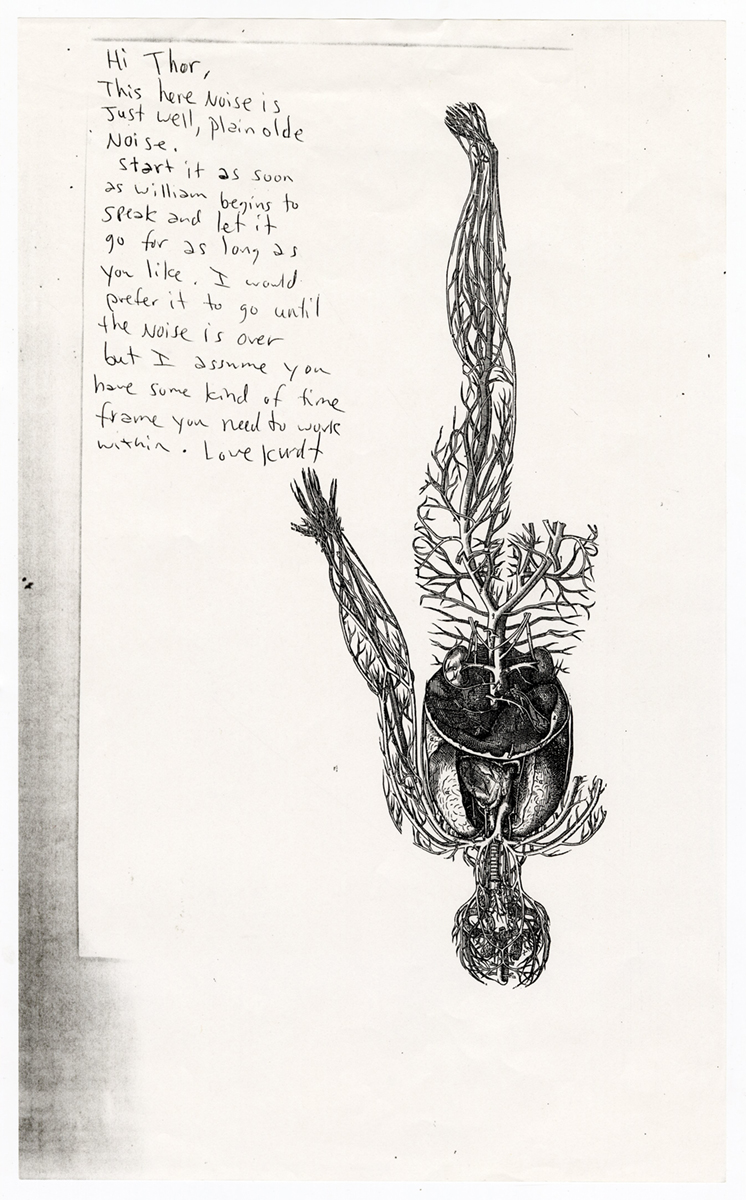 Hi Thor,
This here Noise is
Just well, plain olde
Noise.
Start it as soon
as william begins to
speak and let it
go for as long as
you like. I would
prefer it to go until
the Noise is over
but I assume you
have some kind of time
frame you need to work
within. Love Kurdt